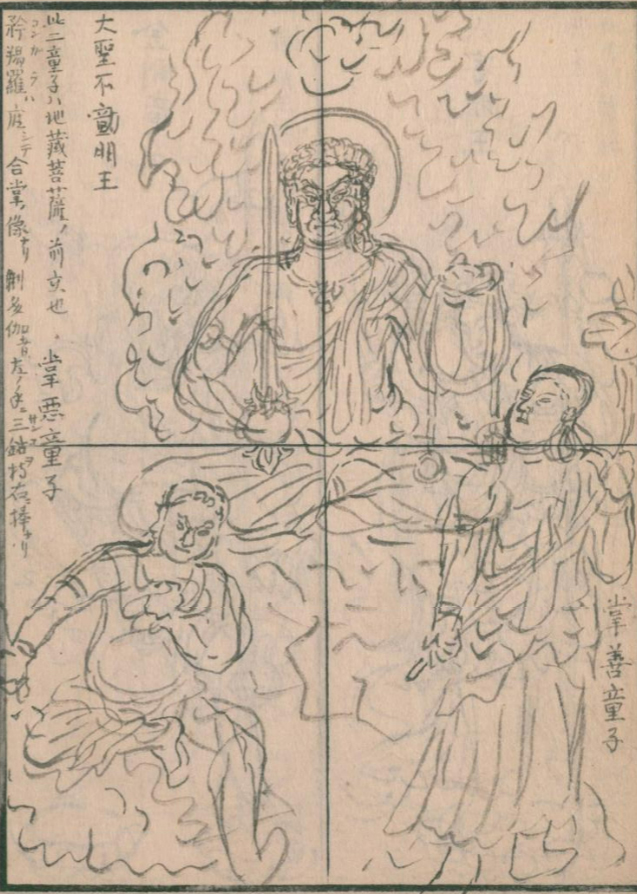 大聖不動明王
掌善童子
掌悪童子
此二童子ハ地藏菩薩ノ前立也
矜羯羅ハ 合掌 像ナリ 制多伽者左ノ手ニ三鈷 持右 棒ナリ